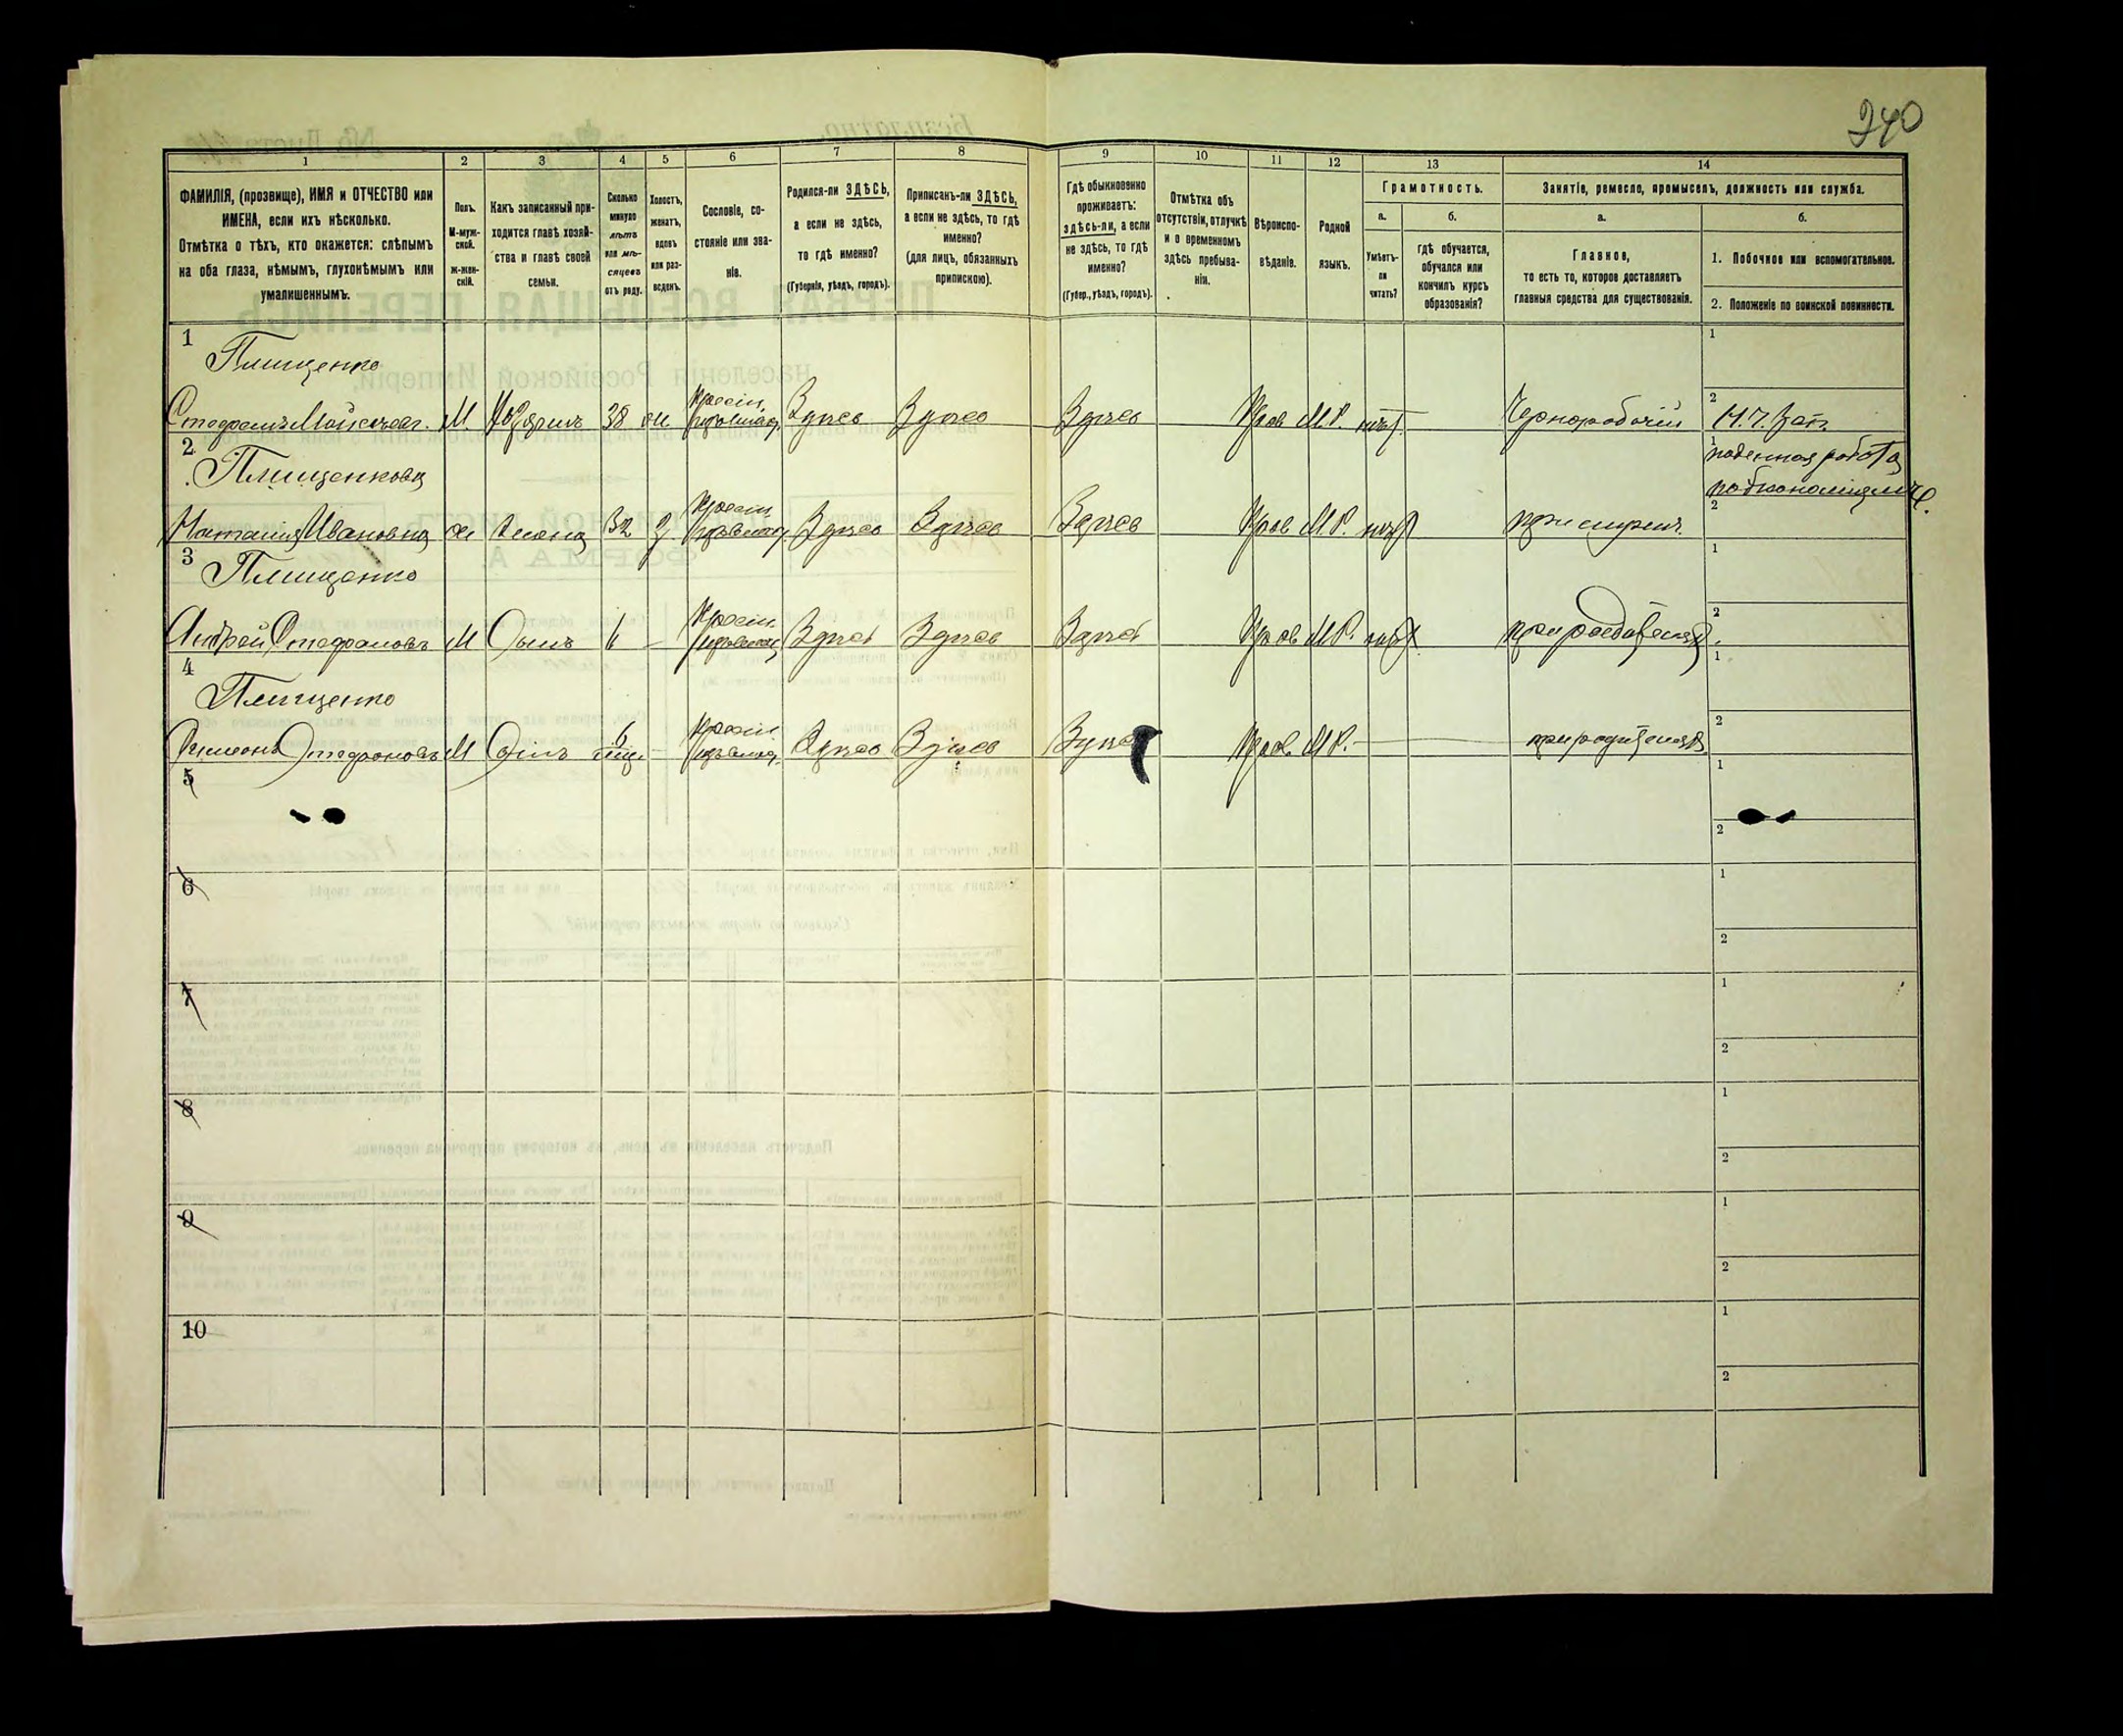 240
1 2 3 4 5 6 7 8 9 10 11 12 13 14
ФАМИЛІЯ, (прозвище), ИМЯ и ОТЧЕСТВО или
ИМЕНА, если ихъ нѣсколько.
Отмѣтка о тѣхъ, кто окажется: слѣпымъ
на оба глаза, нѣмымъ, глухонѣмымъ или
умалишеннымъ.
Полъ.
М-муж-
ской.
ж-жен-
скій.
Какъ записанный при-
ходится главѣ хозяй-
ства и главѣ своей
семьи.
Сколько
минуло
лѣтъ
или мѣ-
сяцевъ
отъ роду.
Холостъ,
женатъ,
вдовъ
или раз-
веденъ.
Сословіе, со-
стояніе или зва-
ніе.
Родился-ли ЗДѢСЬ,
а если не здѣсь,
то гдѣ именно?
(Губернія, уѣздъ, городъ).
Приписанъ-ли ЗДѢСЬ,
а если не здѣсь, то гдѣ
именно?
(для лицъ, обязанныхъ
припискою).
Гдѣ обыкновенно
проживаетъ:
здѣсь-ли, а если
не здѣсь, то гдѣ
именно?
(Губер., уѣздъ, городъ).
Отмѣтка объ
отсутствіи, отлучкѣ
и о временномъ
здѣсь пребыва-
ніи.
Вѣроиспо-
вѣданіе.
Родной
языкъ.
Грамотность.
а.
Умѣетъ-
ли
читать?
б.
гдѣ обучается,
обучался или
кончилъ курсъ
образованія?
Занятіе, ремесло, промыселъ, должность или служба.
а.
Главное,
то есть то, которое доставляетъ
главныя средства для существованія.
б.
1. Побочное или вспомогательное.
2. Положеніе по воинской повинности.
1 Плищенко 1
Стефанъ М Хозяинъ 38 Здѣсь Здѣсь Здѣсь Прав М.Р. нѣтъ Чернорабочій 2
2 Плищенкова 1 поденная работа
Наталія Ивановна Жена 32 Здѣсь Здѣсь Здѣсь Прав М.Р. нѣтъ при мужѣ. 2
3 Плищенко 1
Андрей Стефановъ М Сынъ 6 — Здѣсь Здѣсь Здѣсь Прав М.Р. нѣтъ при 2
4 Плищенко 1
Симеонъ Стефановъ М Сынъ 6 — Здѣсь Здѣсь Здѣсь Прав. М.Р. — при 2
5 1
2
6 1
2
7 1
2
8 1
2
9 1
2
10 1
2